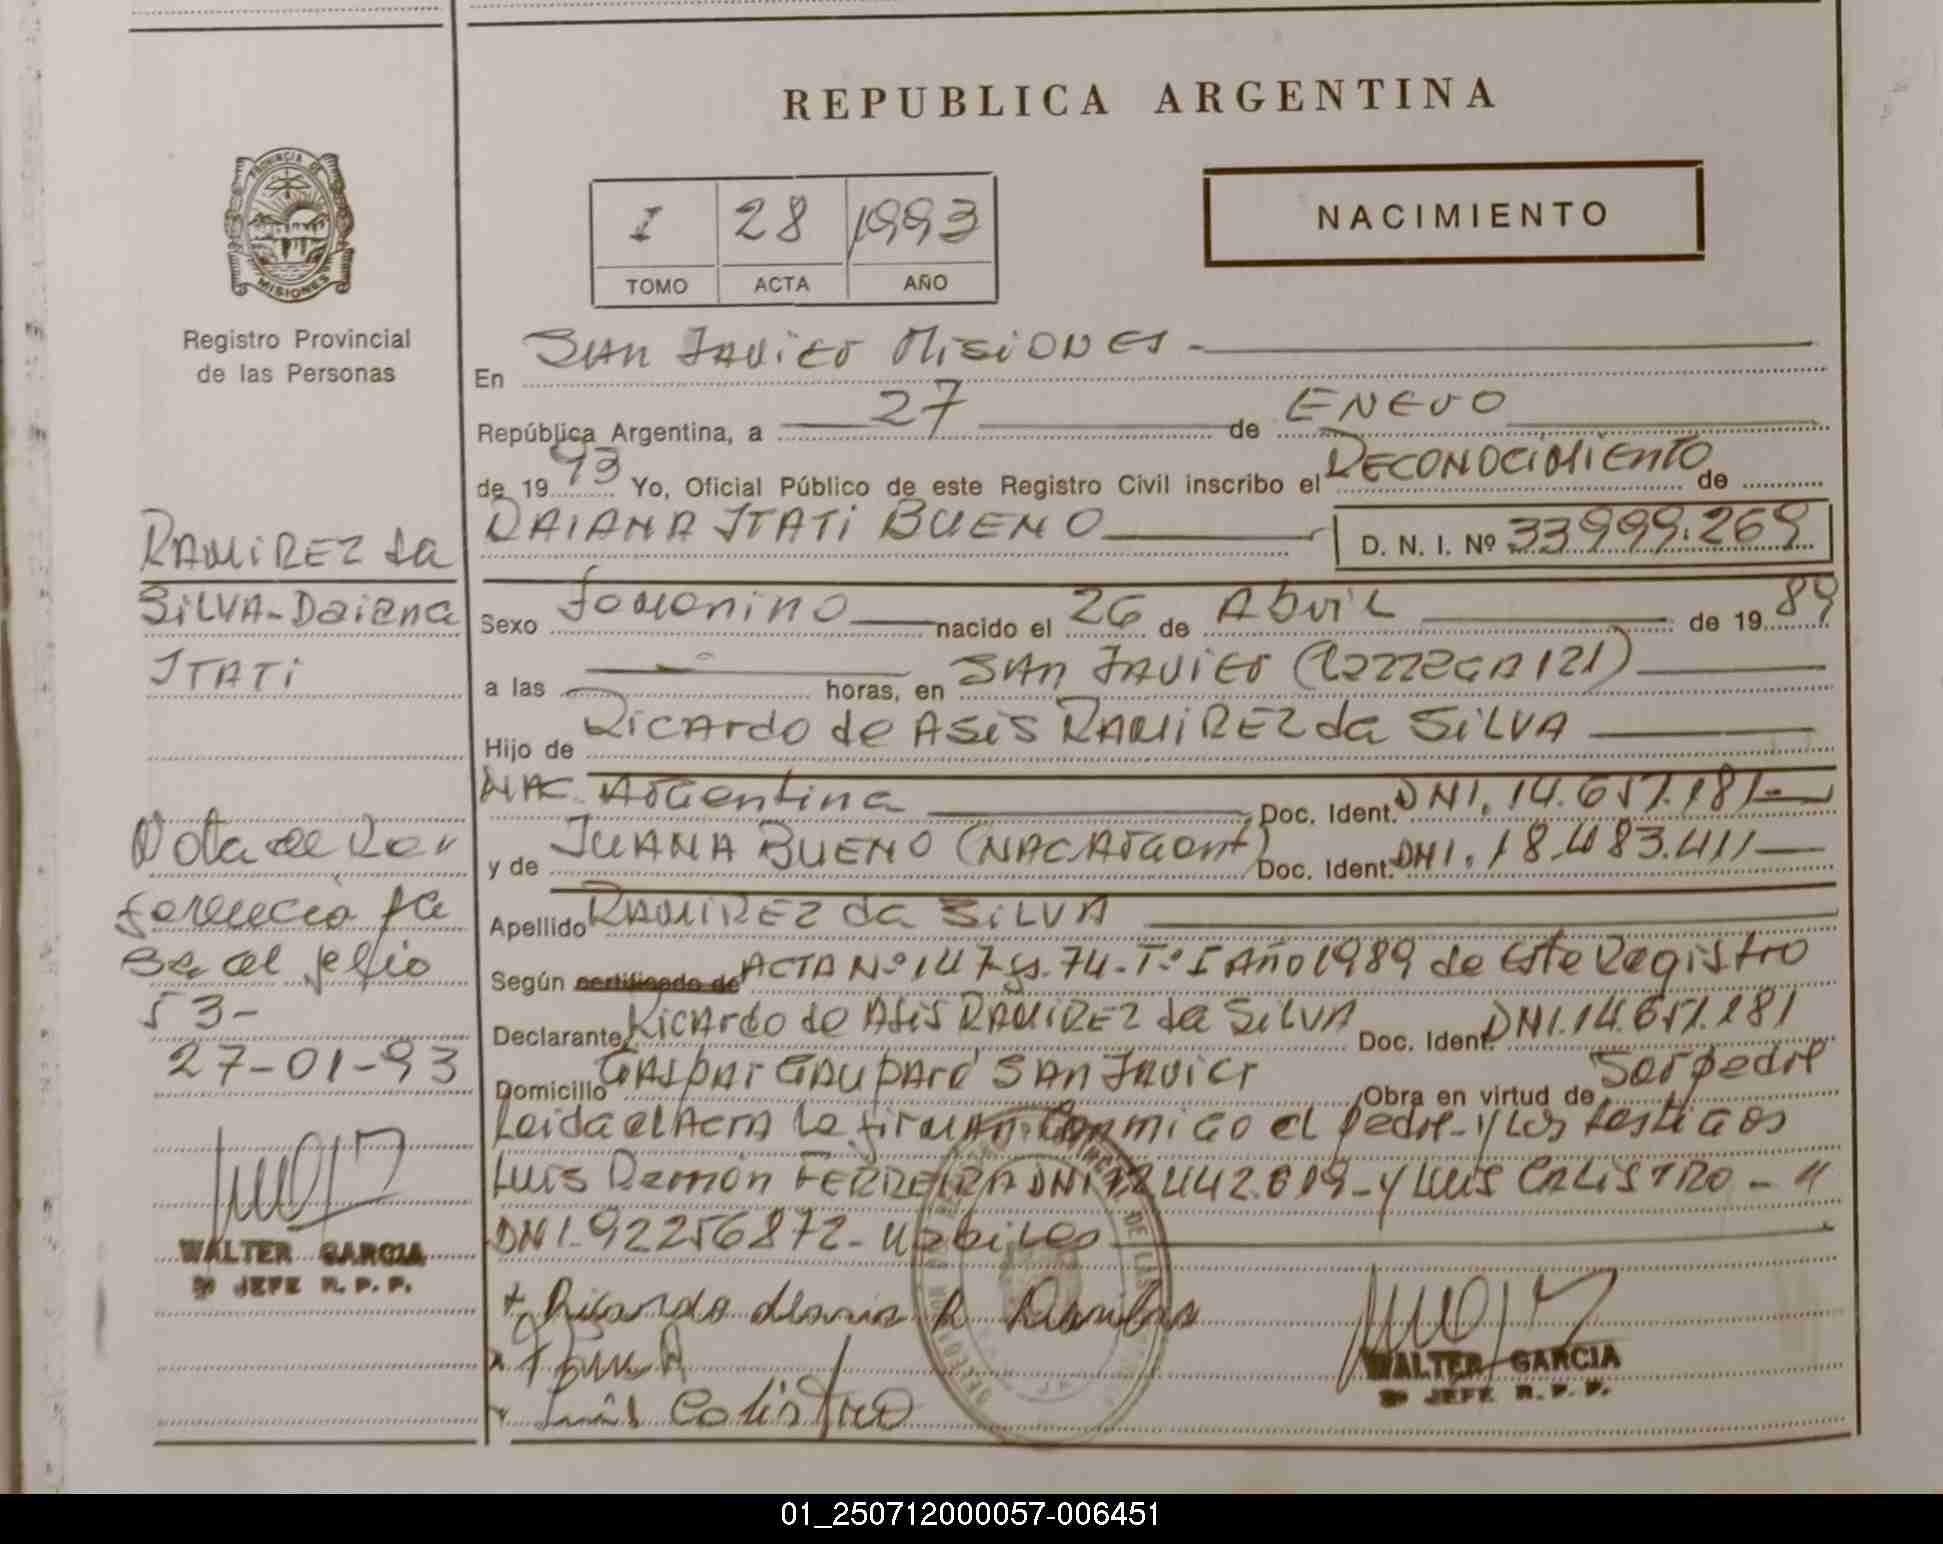 REPUBLICA ARGENTINA
PROVINCIA DE
MISIONES
Registro Provincial
de las Personas
I 28 1993
TOMO ACTA AÑO
NACIMIENTO
En San Javier Misiones.
República Argentina, a 27 de Enero
de 1993 Yo, Oficial Público de este Registro Civil inscribo el Reconocimiento de
DAIANA ITATI BUENO D. N. I. Nº 33999.269
Sexo femenino nacido el 26 de Abril de 1989
a las horas, en San Javier
Hijo de Ricardo de Asis RAMIREZ da SILVA
NAC. Argentina Doc. Ident. DNI. 14.657.181-
y de JUANA BUENO (NAC. Argent) Doc. Ident. DNI. 18.483.411
Apellido RAMIREZ da SILVA
Según certificado de ACTA Nº 147 fs. 74 - Tº I Año 1989 de este Registro
Declarante Ricardo de Asis RAMIREZ da SILVA Doc. Ident. DNI. 14.657.181
Domicilio San Javier Obra en virtud de Ser padre
Leida el Acta la firman conmigo el padre y los testigos
Luis Ramón FERREIRA DNI 442.619 - y Luis CALISTRO - "
DNI. 92256872 - habiles
Ricardo
Luis Calistro
WALTER GARCIA
JEFE R. P. P.
RAMIREZ da
SILVA - Daiana
ITATI
Nota de Re
ferencia fa
sa al folio
53-
27-01-93
WALTER GARCIA
JEFE R. P. P.
01_250712000057-006451